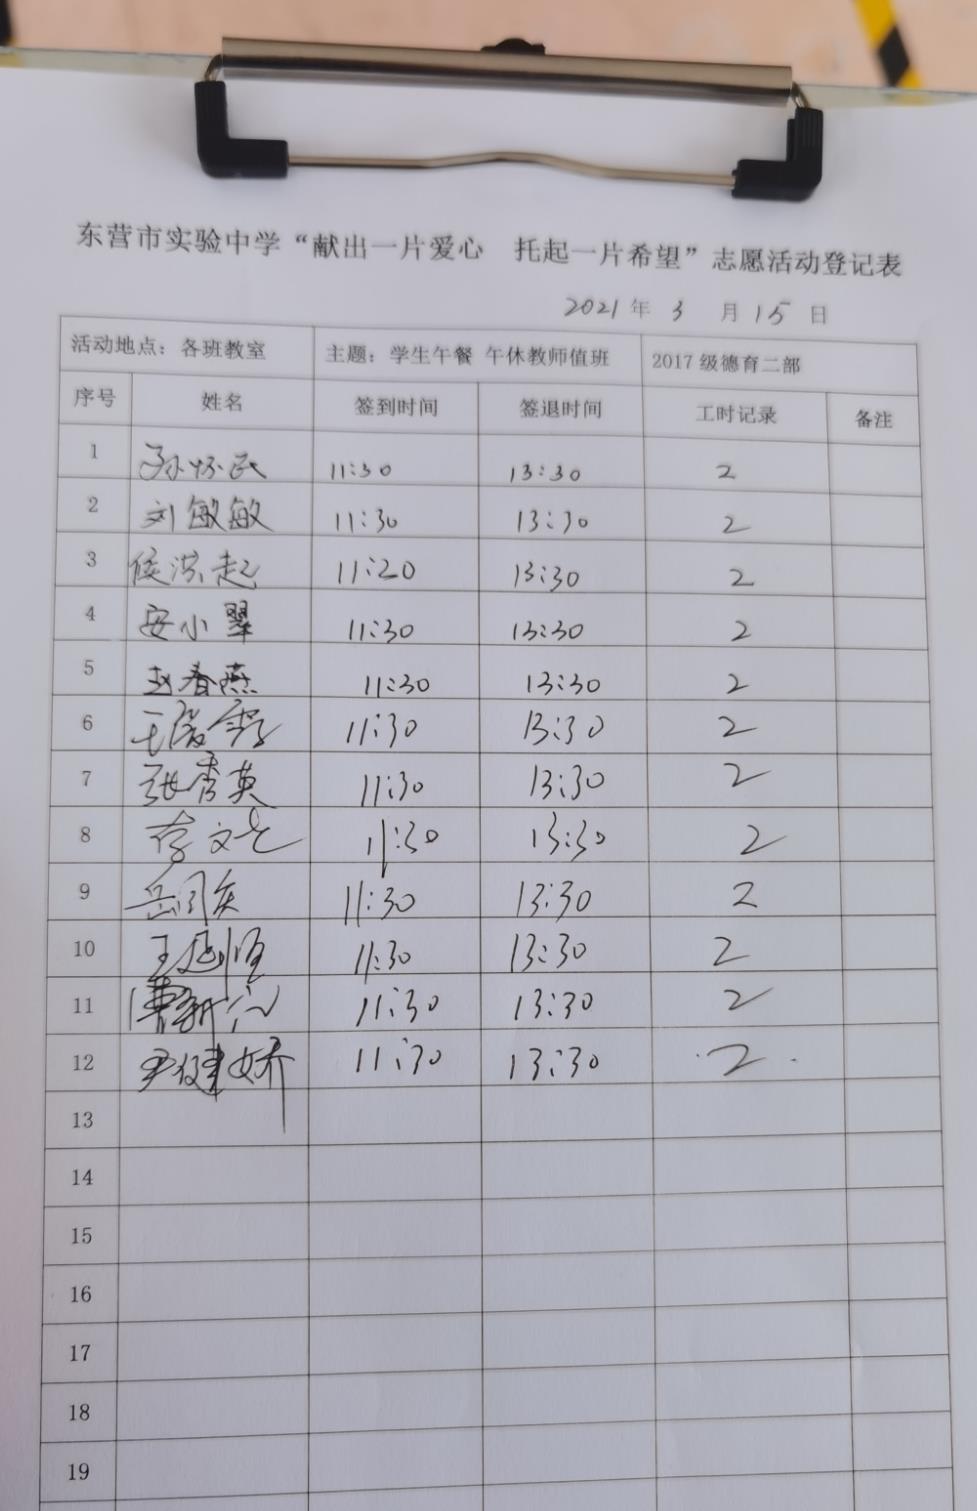 东营市实验中学“献出一片爱心　托起一片希望”志愿活动登记表
2021 年 3 月 15 日
活动地点：各班教室 主题：学生午餐 午休教师值班 2017 级德育二部
序号 姓名 签到时间 签退时间 工时记录 备注
1 孙怀民 11:30 13:30 2
2 刘敏敏 11:30 13:30 2
3 侯洪起 11:20 13:30 2
4 安小翠 11:30 13:30 2
5 赵春燕 11:30 13:30 2
6 11:30 13:30 2
7 张秀英 11:30 13:30 2
8 李文 11:30 13:30 2
9 11:30 13:30 2
10 王 11:30 13:30 2
11 11:30 13:30 2
12 尹健娇 11:30 13:30 2
13
14
15
16
17
18
19